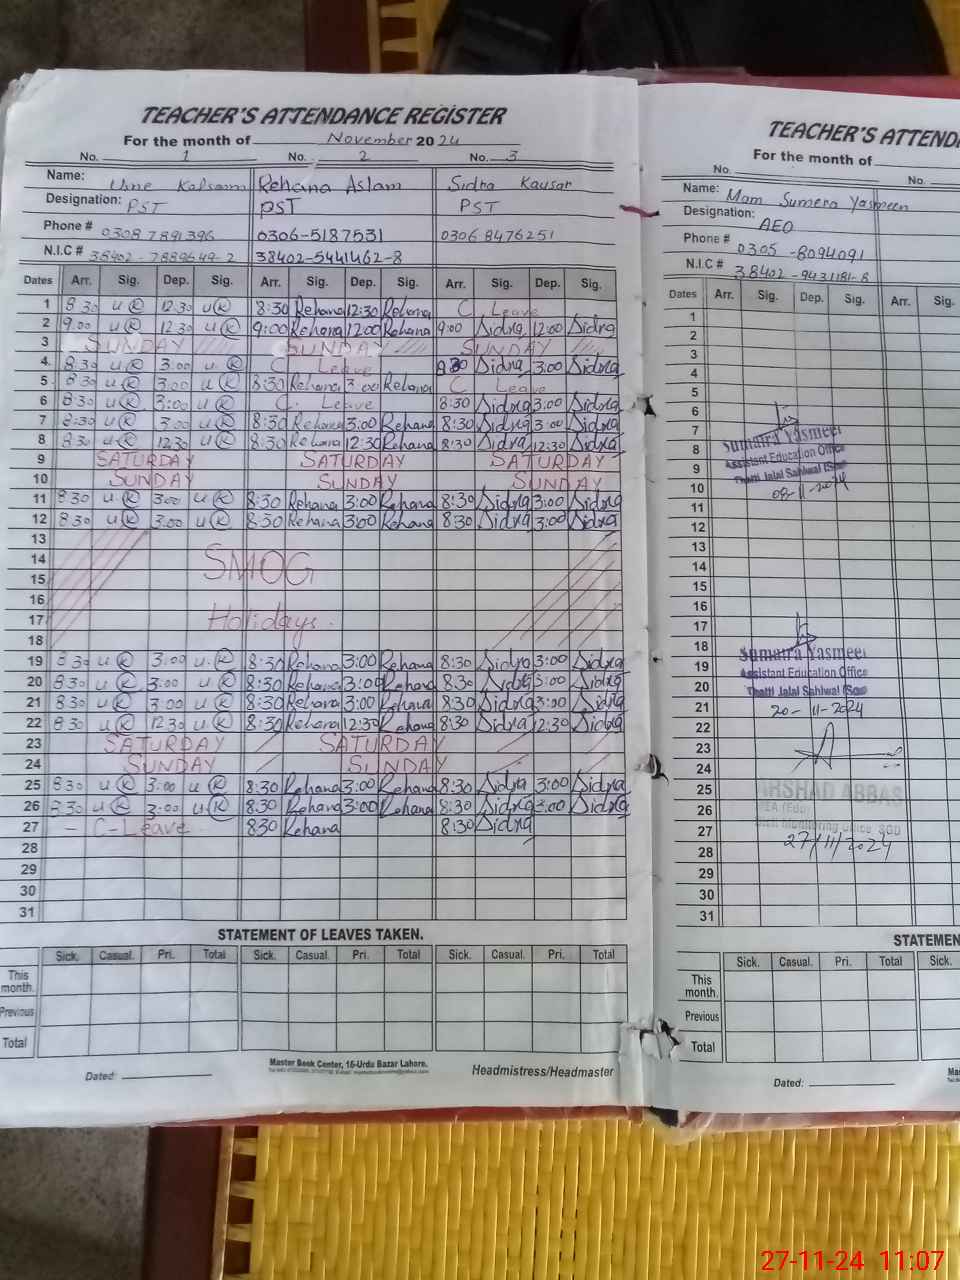 TEACHER'S ATTENDANCE REGISTER
For the month of November 2024
No. 1 No. 2 No. 3
Name: Ume Kalsoom Rehana Aslam Sidra Kausar
Designation: PST PST PST
Phone # 0308 7891396 0306-5187531 0306 8476251
N.I.C # 38402-7889649-2 38402-5441462-8
Dates Arr. Sig. Dep. Sig. Arr. Sig. Dep. Sig. Arr. Sig. Dep. Sig.
1 8:30 u K 12:30 u K 8:30 Rehana 12:30 Rehana C Leave
2 9:00 u K 12:30 u K 9:00 Rehana 12:00 Rehana 9:00 Sidra 12:00 Sidra
3 SUNDAY SUNDAY SUNDAY
4 8:30 u K 3:00 u K C Leave 8:30 Sidra 3:00 Sidra
5 8:30 u K 3:00 u K 8:30 Rehana 3:00 Rehana C Leave
6 8:30 u K 3:00 u K C. Leave 8:30 Sidra 3:00 Sidra
7 8:30 u K 3:00 u K 8:30 Rehana 3:00 Rehana 8:30 Sidra 3:00 Sidra
8 8:30 u K 12:30 u K 8:30 Rehana 12:30 Rehana 8:30 Sidra 12:30 Sidra
9 SATURDAY SATURDAY SATURDAY
10 SUNDAY SUNDAY SUNDAY
11 8:30 u K 3:00 u K 8:30 Rehana 3:00 Rehana 8:30 Sidra 3:00 Sidra
12 8:30 u K 3:00 u K 8:30 Rehana 3:00 Rehana 8:30 Sidra 3:00 Sidra
13
14 SMOG
15
16
17 Holidays.
18
19 8:30 u K 3:00 u K 8:30 Rehana 3:00 Rehana 8:30 Sidra 3:00 Sidra
20 8:30 u K 3:00 u K 8:30 Rehana 3:00 Rehana 8:30 Sidra 3:00 Sidra
21 8:30 u K 3:00 u K 8:30 Rehana 3:00 Rehana 8:30 Sidra 3:00 Sidra
22 8:30 u K 12:30 u K 8:30 Rehana 12:30 Rehana 8:30 Sidra 12:30 Sidra
23 SATURDAY SATURDAY
24 SUNDAY SUNDAY
25 8:30 u K 3:00 u K 8:30 Rehana 3:00 Rehana 8:30 Sidra 3:00 Sidra
26 8:30 u K 3:00 u K 8:30 Rehana 3:00 Rehana 8:30 Sidra 3:00 Sidra
27 - C-Leave 8:30 Rehana 8:30 Sidra
28
29
30
31
STATEMENT OF LEAVES TAKEN.
Sick. Casual. Pri. Total Sick. Casual. Pri. Total Sick. Casual. Pri. Total
This month.
Previous
Total
Dated:
Master Book Center, 16-Urdu Bazar Lahore.
Headmistress/Headmaster
TEACHER'S ATTEND
For the month of
No. No.
Name: Mam Sumera Yasmeen
Designation: AEO
Phone # 0305-8094091
N.I.C # 38402-9431181-8
Dates Arr. Sig. Dep. Sig. Arr. Sig.
1
2
3
4
5
6
7
8
9
10
11
12
13
14
15
16
17
18
19
20
21
22
23
24
25
26
27
28
29
30
31
Sumaira Yasmeen
Assistant Education Office
Thatti Jalal Sahiwal (Sgd)
08-11-2024
Sumaira Yasmeen
Assistant Education Office
Thatti Jalal Sahiwal (Sgd)
20-11-2024
ARSHAD ABBAS
MEA (Edu)
Monitoring Office SGD
27/11/2024
STATEMEN
Sick. Casual. Pri. Total Sick.
This month.
Previous
Total
Dated:
Mas
27-11-24 11:07